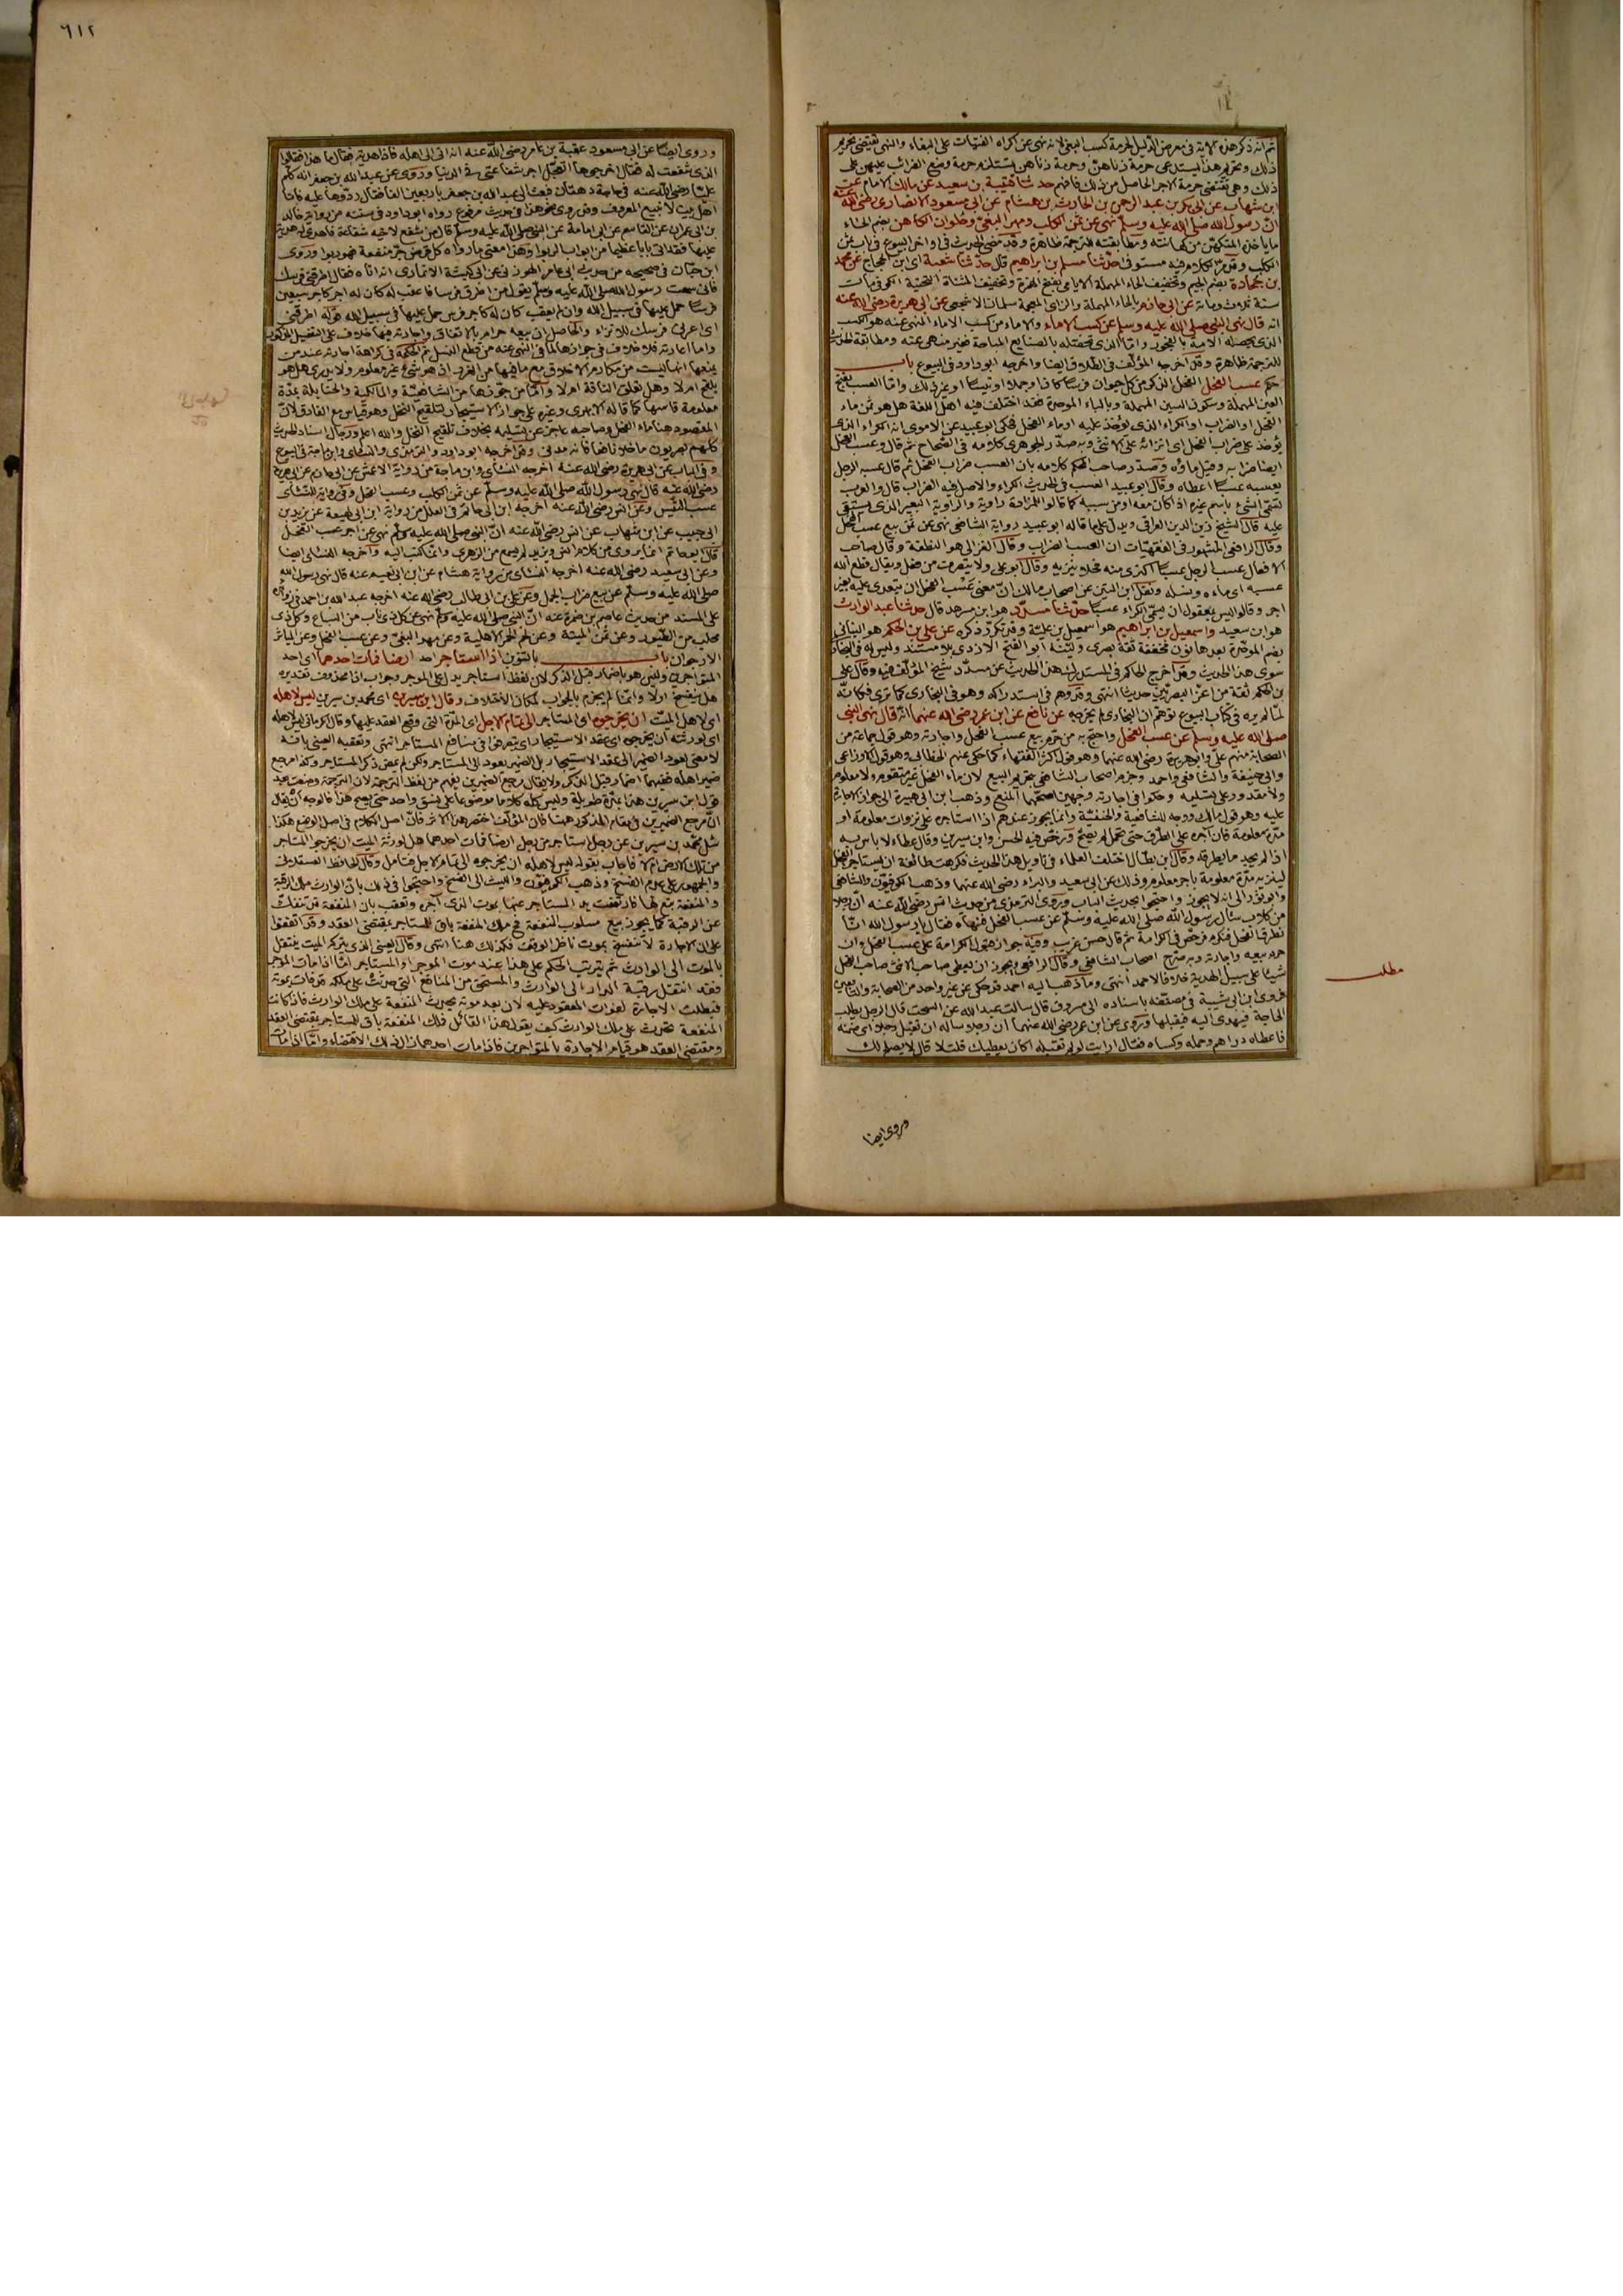 ٦١٢
ثم انه ذكر هذه الآية في معرض الدليل لحرمة كسب البغي لانه نهى عن اكراه الفتيات على البغاء والنهي يقتضي تحريم
ذلك وتحريم هذا يستدعي حرمة زناهن وحرمة زناهن يستلزم حرمة وضع الضرائب عليهن
ذلك وهي تقتضي حرمة الاجر الحاصل من ذلك فافهم حدثنا قتيبة بن سعيد عن مالك الامام عن
ابن شهاب عن ابي بكر بن عبد الرحمن بن الحارث بن هشام عن ابي مسعود الانصاري رضي الله عنه
ان رسول الله صلى الله عليه وسلم نهى عن ثمن الكلب ومهر البغي وحلوان الكاهن بضم الحاء
ما ياخذه المتكهن من كهانته ومطابقته للترجمة ظاهرة وقد مضى الحديث في اواخر البيوع في باب ثمن
الكلب وقد مر الكلام فيه مستوفى حدثنا مسلم بن ابراهيم قال حدثنا شعبة اي ابن الحجاج عن محمد
بن جحادة بضم الجيم وتخفيف الحاء المهملة الايامي بفتح الهمزة وتخفيف المثناة التحتية الكوفي مات
سنة ثلاث ومائة عن ابي حازم بالحاء المهملة والزاي المعجمة سلمان الاشجعي عن ابي هريرة رضي الله عنه
انه قال نهى النبي صلى الله عليه وسلم عن كسب الاماء والاماء من كسب الاماء المنهي عنه هو الكسب
الذي تحصله الامة بالفجور واما الذي تحصله بالصنايع المباحة فغير منهي عنه ومطابقة الحديث
للترجمة ظاهرة وقد اخرجه المؤلف في الطلاق ايضا واخرجه ابو داود في البيوع باب
حكم عسب الفحل الفحل الذكر من كل حيوان فرسا كان او جملا او تيسا او غير ذلك واما العسب بفتح
العين المهملة وسكون السين المهملة وبالباء الموحدة فقد اختلف فيه اهل اللغة هل هو ثمن ماء
الفحل او الضراب او الكراء الذي يؤخذ عليه او ماء الفحل فحكى ابو عبيد عن الاموي انه الكراء الذي
يؤخذ على ضراب الفحل اي انزائه على الانثى وبه صدر الجوهري كلامه في الصحاح ثم قال وعسب الفحل
ايضا ضرابه وقيل ماؤه وصدر صاحب المحكم كلامه بان العسب ضراب الفحل ثم قال عسب الرجل
يعسبه عسبا اعطاه وقال ابو عبيد العسب في الحديث الكراء والاصل فيه الضراب قال والعرب
تسمي الشيء باسم غيره اذا كان معه او من سببه كما قالوا للمزادة راوية والراوية البعير الذي يستقى
عليه قال الشيخ زين الدين العراقي ويدل على ما قاله ابو عبيد رواية الشافعي نهى عن ثمن بيع عسب الفحل
وقال الرافعي المشهور في الفقهيات ان العسب الضراب وقال الغزالي هو النطفة وقال صاحب
الافعال عسب الرجل عسبا اكترى منه فحلا ينزيه وقال ابو علي ولا يتصرف منه فعل ويقال قطع الله
عسبه اي ماءه ونسله ونقل ابن التين عن اصحاب مالك ان معنى عسب الفحل ان يتعدى عليه بغير
اجر وقالوا ليس بمعقول ان يسمى الكراء عسبا حدثنا مسدد هو ابن مسرهد قال حدثنا عبد الوارث
هو ابن سعيد واسمعيل بن ابراهيم هو اسمعيل بن علية وقد تكرر ذكره عن علي بن الحكم هو البناني
بضم الموحدة بعدها نون مخففة ثقة بصري ولينه ابو الفتح الازدي بلا مستند وليس له في البخاري
سوى هذا الحديث وقد اخرج الحاكم في المستدرك هذا الحديث عن مسدد شيخ المؤلف فيه وقال علي
بن الحكم ثقة من اعز البصريين حديثا انتهى وقد وهم في استدراكه وهو في البخاري كما ترى فكانه
لما لم يره في كتاب البيوع توهم ان البخاري لم يخرجه عن نافع عن ابن عمر رضي الله عنهما انه قال نهى النبي
صلى الله عليه وسلم عن عسب الفحل واحتج به من حرم بيع عسب الفحل واجارته وهو قول جماعة من
الصحابة منهم علي وابو هريرة رضي الله عنهما وهو قول اكثر الفقهاء كما حكى عنهم الخطابي وهو قول الاوزاعي
وابي حنيفة والشافعي واحمد وجزم اصحاب الشافعي بتحريم البيع لان ماء الفحل غير متقوم ولا معلوم
ولا مقدور على تسليمه وحكوا في اجارته وجهين اصحهما المنع وذهب ابن ابي هريرة الى جواز الاجارة
عليه وهو قول مالك ووجه للشافعية والحنفية وانما يجوز عندهم اذا استاجره على نزوات معلومة او
مدة معلومة فان آجره على الطرق حتى يحمل لم يصح ورخص فيه الحسن وابن سيرين وقال عطاء لا باس به
اذا لم يجد ما يطرقه وقال ابن بطال اختلف العلماء في تاويل هذا الحديث فكرهت طائفة ان يستاجر الفحل
لينزيه مدة معلومة باجر معلوم وذلك عن ابي سعيد والبراء رضي الله عنهما وذهب الكوفيون والشافعي
وابو ثور الى انه لا يجوز واحتجوا بحديث الباب وروى الترمذي من حديث انس رضي الله عنه ان رجلا
من كلاب سأل رسول الله صلى الله عليه وسلم عن عسب الفحل فنهاه فقال يا رسول الله انا
نطرق الفحل فنكرم فرخص في الكرامة ثم قال حسن غريب وفيه جواز قبول الكرامة على عسب الفحل وان
حرم بيعه واجارته وبه صرح اصحاب الشافعي وقال الرافعي ويجوز ان يعطي صاحب الانثى صاحب الفحل
شيئا على سبيل الهدية خلافا لاحمد انتهى وما ذهب اليه احمد قد حكي عن غير واحد من الصحابة والتابعين
فروى ابن ابي شيبة في مصنفه باسناده الى مسروق قال سالت عبد الله عن السحت قال الرجل يطلب
الحاجة فيهدى اليه فيقبلها وروي عن ابن عمر رضي الله عنهما ان رجلا ساله ان تقبل رجلا اي ضمنه
فاعطاه دراهم وحمله وكساه فقال ارايت لو لم تقبله اكان يعطيك قلت لا قال لا يصلح لك
مطلب
وروى ايضا
وروى ايضا عن ابي مسعود عقبة بن عامر رضي الله عنه انه اتى الى اهله فاذا هدية فقال ما هذا فقالوا
الذي شفعت له فقال اخرجوها اتعجل اجر شفاعتي في الدنيا وروي عن عبد الله بن جعفر انه كلم
عليا رضي الله عنه في حاجة دهقان فبعث الى عبد الله بن جعفر باربعين الفا فقال ردوها عليه فانا
اهل بيت لا نبيع المعروف وقد روي نحو هذا في حديث مرفوع رواه ابو داود في سننه من رواية خالد
بن ابي عمران عن القاسم عن ابي امامة عن النبي صلى الله عليه وسلم قال من شفع لاخيه شفاعة فاهدى له هدية
عليها فقد اتى بابا عظيما من ابواب الربوا وهذا معنى ما رواه كل قرض جر منفعة فهو ربوا وروى
ابن حبان في صحيحه من حديث ابي عامر الهوزني عن ابي كبشة الانماري انه اتاه فقال اطرقني فرسك
فاني سمعت رسول الله صلى الله عليه وسلم يقول من اطرق فرسا فاعقب له كان له اجر كاجر سبعين
فرسا حمل عليها في سبيل الله وان لم يعقب كان له كاجر فرس حمل عليها في سبيل الله قوله اطرقني
اي اعرني فرسك للانزاء والحاصل ان بيعه حرام بالاتفاق واجارته فيها خلاف على التفصيل المذكور
واما اعارته فلا خلاف في جوازها لما في النهي عنه من قطع النسل ثم الحكمة في كراهة اجارته عند من
يمنعها انها ليست من مكارم الاخلاق مع ما فيها من الغرر اذ هو شيء غير معلوم ولا يدري هل هو
يلقح ام لا وهل تعلق الناقة ام لا واما من جوزها من الشافعية والمالكية والحنابلة بمدة
معلومة قاسها كما قاله الابهري وغيره على جواز الاستيجار لتلقيح النخل وهو قياس مع الفارق لان
المقصود هنا ماء الفحل وصاحبه عاجز عن تسليمه بخلاف تلقيح النخل والله اعلم ورجال اسناد الحديث
كلهم بصريون ما خلا نافعا فانه مدني وقد اخرجه ابو داود والترمذي والنسائي وابن ماجة في البيوع
وفي الباب عن ابي هريرة رضي الله عنه اخرجه النسائي وابن ماجة من رواية الاعمش عن ابي حازم عن ابي هريرة
رضي الله عنه قال نهى رسول الله صلى الله عليه وسلم عن ثمن الكلب وعسب الفحل وفي رواية للنسائي
عسب التيس وعن انس رضي الله عنه اخرجه ابن ابي حاتم في العلل من رواية ابن لهيعة عن يزيد بن
ابي حبيب عن ابن شهاب عن انس رضي الله عنه ان النبي صلى الله عليه وسلم نهى عن اجر عسب الفحل
قال ابو حاتم انما يروى من كلام انس ويزيد لم يسمع من الزهري وانما كتب اليه واخرجه النسائي ايضا
وعن ابي سعيد رضي الله عنه اخرجه النسائي من رواية هشام عن ابن ابي نعيم عنه قال نهى رسول الله
صلى الله عليه وسلم عن بيع ضراب الجمل وعن علي بن ابي طالب رضي الله عنه اخرجه عبد الله بن احمد في زوائده
على المسند من حديث عاصم بن ضمرة عنه ان النبي صلى الله عليه وسلم نهى عن كل ذي ناب من السباع وكل ذي
مخلب من الطيور وعن ثمن الميتة وعن لحم الحمر الاهلية وعن مهر البغي وعن عسب الفحل وعن المياثر
الارجوان باب بالتنوين اذا استاجر احد ارضا فمات احدهما اي احد
المتواجرين وليس هو باضمار قبل الذكر لان لفظ استاجر يدل على الموجر وجواب اذا محذوف تقديره
هل ينفسخ او لا وانما لم يجزم بالجواب لمكان الاختلاف وقال ابن سيرين اي محمد بن سيرين ليس لاهله
اي لاهل الميت ان يخرجوه اي المستاجر الى تمام الاجل اي المدة التي وقع العقد عليها وقال الكرماني ليس لاهله
اي لورثته ان يخرجوه اي عقد الاستيجار اي يتصرفوا في منافع المستاجر انتهى وتعقبه العيني بانه
لا معنى لعود الضمير الى عقد الاستيجار بل الضمير يعود الى المستاجر ولكن لم يمض ذكر المستاجر وكذا مرجع
ضمير اهله ففيهما اضمار قبل الذكر ولا يقال مرجع الضميرين يفهم من لفظ الترجمة لان الترجمة وضعت بعد
قول ابن سيرين هذا بمدة طويلة وليس كله كلاما موضوعا على نسق واحد حتى يصح هذا فالوجه ان يقال
ان مرجع الضميرين في مقام المذكور ههنا كان المؤلف اختصر هذا الاثر فان اصل الكلام في اصل الوضع هكذا
سئل محمد بن سيرين عن رجل استاجر من رجل ارضا فمات احدهما هل لورثة الميت ان يخرجوا المستاجر
من تلك الارض ام لا فاجاب بقوله ليس لاهله ان يخرجوه الى تمام الاجل فتامل وقال الحافظ العسقلاني
والجمهور على عدم الفسخ وذهب الكوفيون والليث الى الفسخ واحتجوا في ذلك بان الوارث ملك الرقبة
والمنفعة تبع لها فارتفعت يد المستاجر عنها بموت الذي آجره وتعقب بان المنفعة قد تنفك
عن الرقبة كما يجوز بيع مسلوب المنفعة فح ملك المنفعة باق للمستاجر بمقتضى العقد وقد اتفقوا
على ان الاجارة لا تنفسخ بموت ناظر الوقف فكذلك هنا انتهى وقال العيني الذي يتركه الميت ينتقل
بالموت الى الوارث ثم يترتب الحكم على هذا عند موت الموجر او المستاجر اما اذا مات الموجر
فقد انتقل رقبة الدار الى الوارث والمستحق من المنافع التي حدثت على ملكه قد فات بموته
فبطلت الاجارة لفوات المعقود عليه لان بعد موته يحدث المنفعة على ملك الوارث فاذا كانت
المنفعة تحدث على ملك الوارث كيف يقول هذا القائل فلك المنفعة باق للمستاجر بمقتضى العقد
ومقتضى العقد هو قيام الاجارة بالمتواجرين فاذا مات احدهما زال ذلك الاقتضاء واما اذا مات